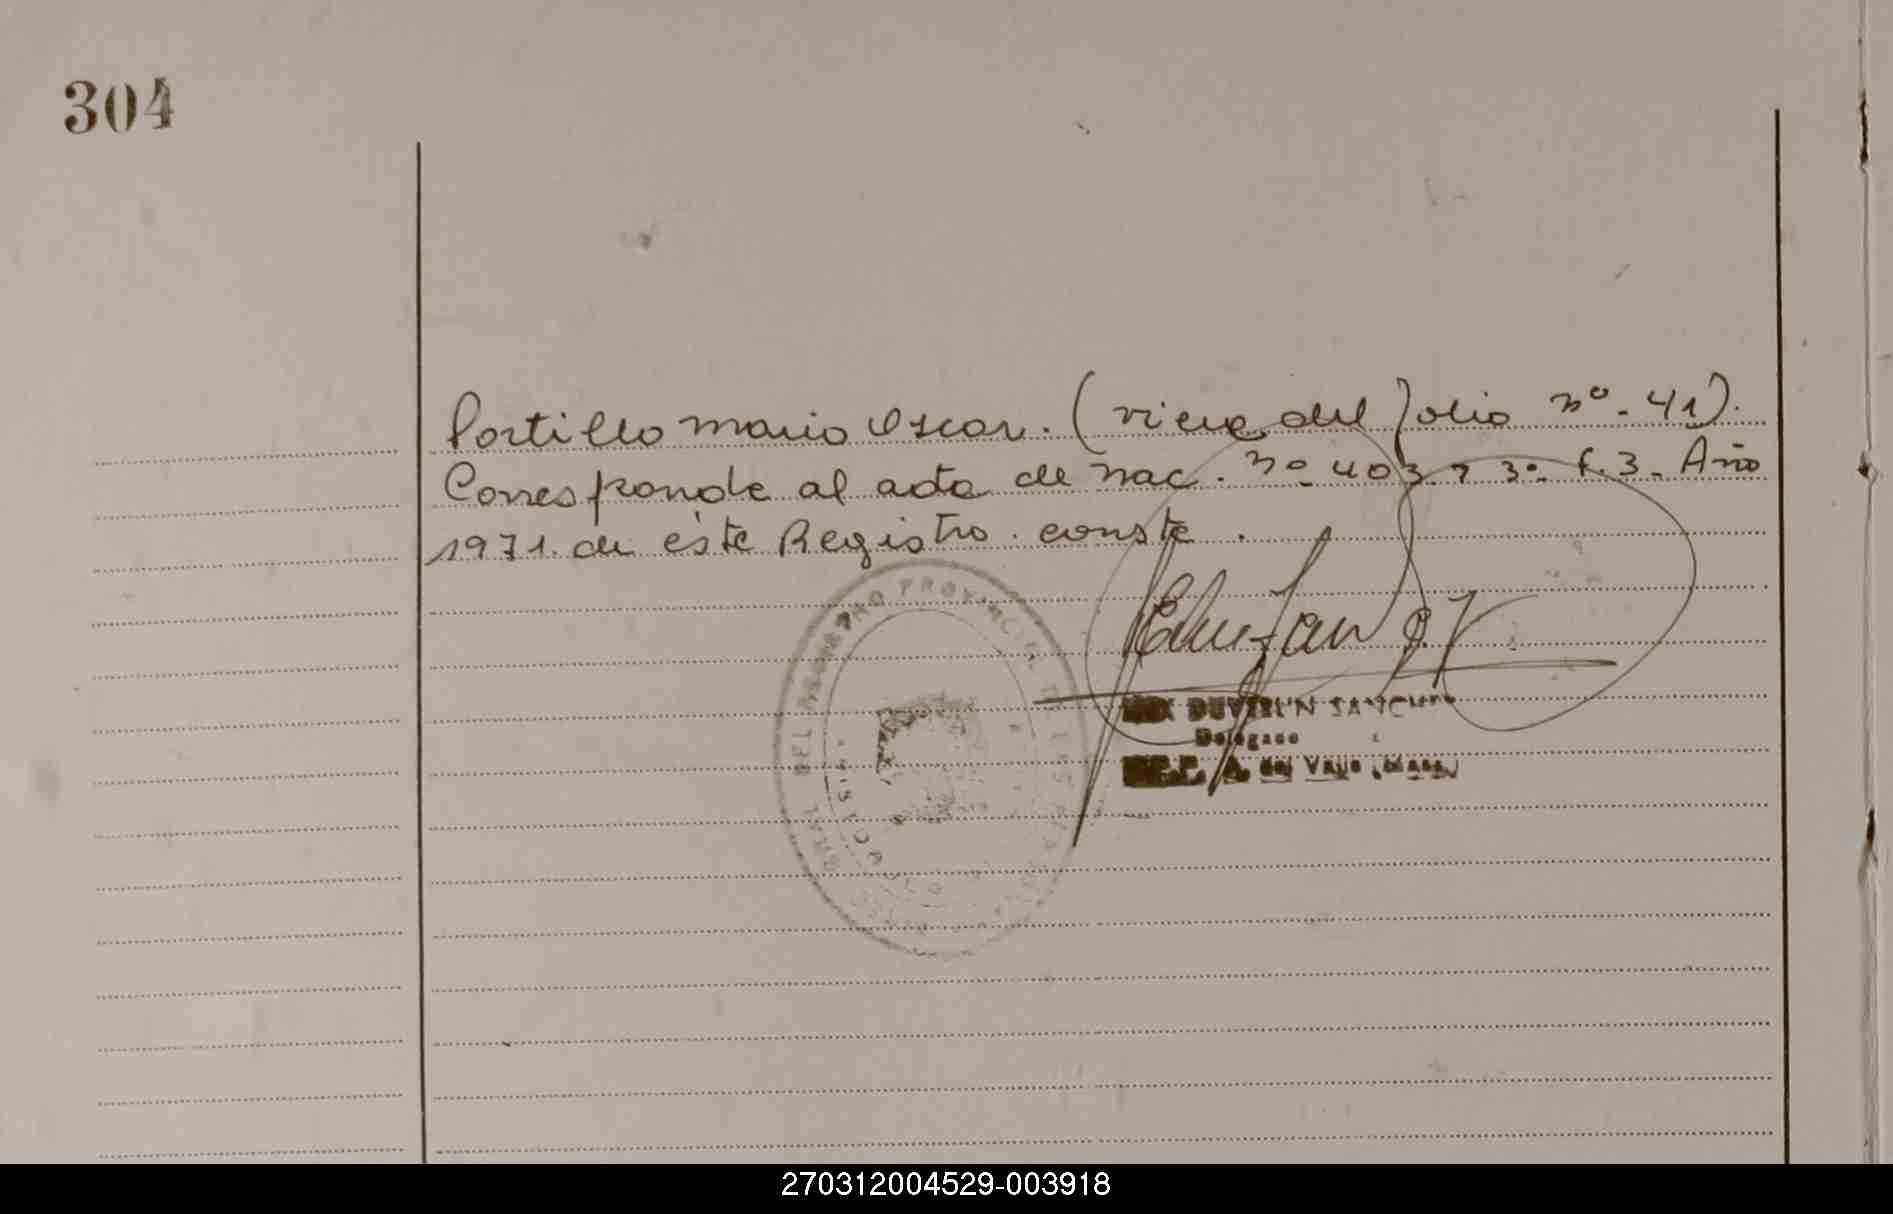 304
Portillo Mario Oscar. (viene del folio nº. 41).
Corresponde al acta de nac. nº 403 T 3º. f. 3. Año
1971. de éste Registro. conste.
DEL REGISTRO PROVINCIAL DE LAS
SANCHEZ
Delegado
del Valle
270312004529-003918